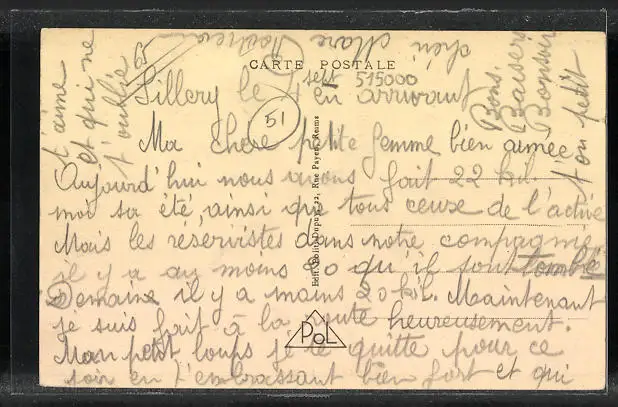 CARTE POSTALE
Sillery le 4 sept en arrivant
515000
51
Ma chere petite femme bien aimée
Aujourd'hui nous avons fait 22 kil.
moi sa été, ainsi que tous ceuxe de l'active
Mais les réservistes dans notre compagnie
il y a au moins 20 qu'il sont tombé
Demaine il y a mains 20 kil. Maintenant
je suis fait à la route heureusement.
Mon petit loups je te quitte pour ce
soir en t'embrassant bien fort et qui
t'aime
et qui ne
t'oublie
Bons
Baisers
Bonsoir
ton petit
chéri Marc
Edit. Dupuy, 22, Rue Payen, Reims
PoL